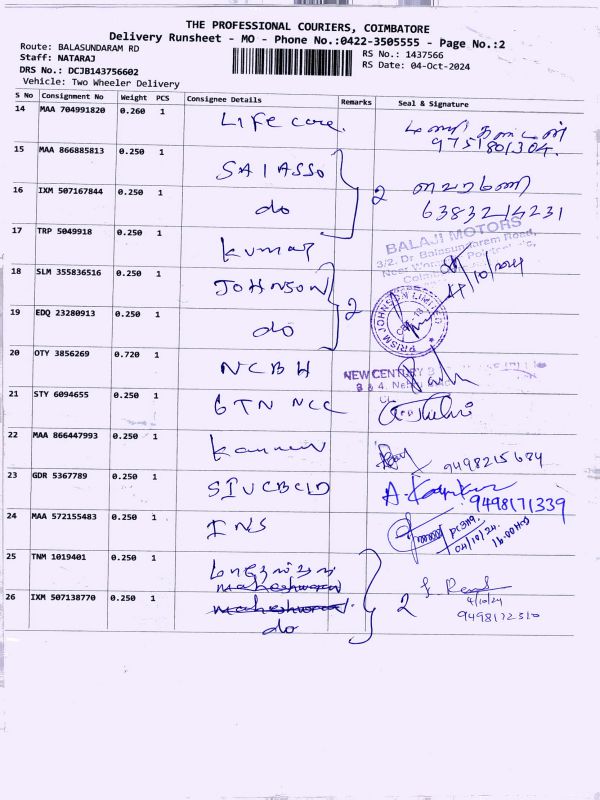 THE PROFESSIONAL COURIERS, COIMBATORE
Delivery Runsheet - MO - Phone No.:0422-3505555 - Page No.:2
Route: BALASUNDARAM RD
RS No.: 1437566
Staff: NATARAJ
RS Date: 04-Oct-2024
DRS No.: DCJB143756602
Vehicle: Two Wheeler Delivery
S No Consignment No Weight PCS Consignee Details Remarks Seal & Signature
14 MAA 704991820 0.260 1 Life care.
9751801304.
15 MAA 866885813 0.250 1 SAI ASSO
2
16 IXM 507167844 0.250 1 do
6383214231
17 TRP 5049918 0.250 1 kumar
BALAJI MOTORS
3/2, Dr. Balasundaram Road,
18 SLM 355836516 0.250 1 JOHNSON
2
PRISM JOHNSON LIMITED
19 EDQ 23280913 0.250 1 do
20 OTY 3856269 0.720 1 NCBH
NEW CENTURY
21 STY 6094655 0.250 1 GTN NCC
22 MAA 866447993 0.250 1 kannan
9498215684
23 GDR 5367789 0.250 1 SIUCBCID
9498171339
24 MAA 572155483 0.250 1 INS
04/10/24.
25 TNM 1019401 0.250 1
maheshwara
26 IXM 507138770 0.250 1 maheshwara.
do
2
4/10/24
9498172510